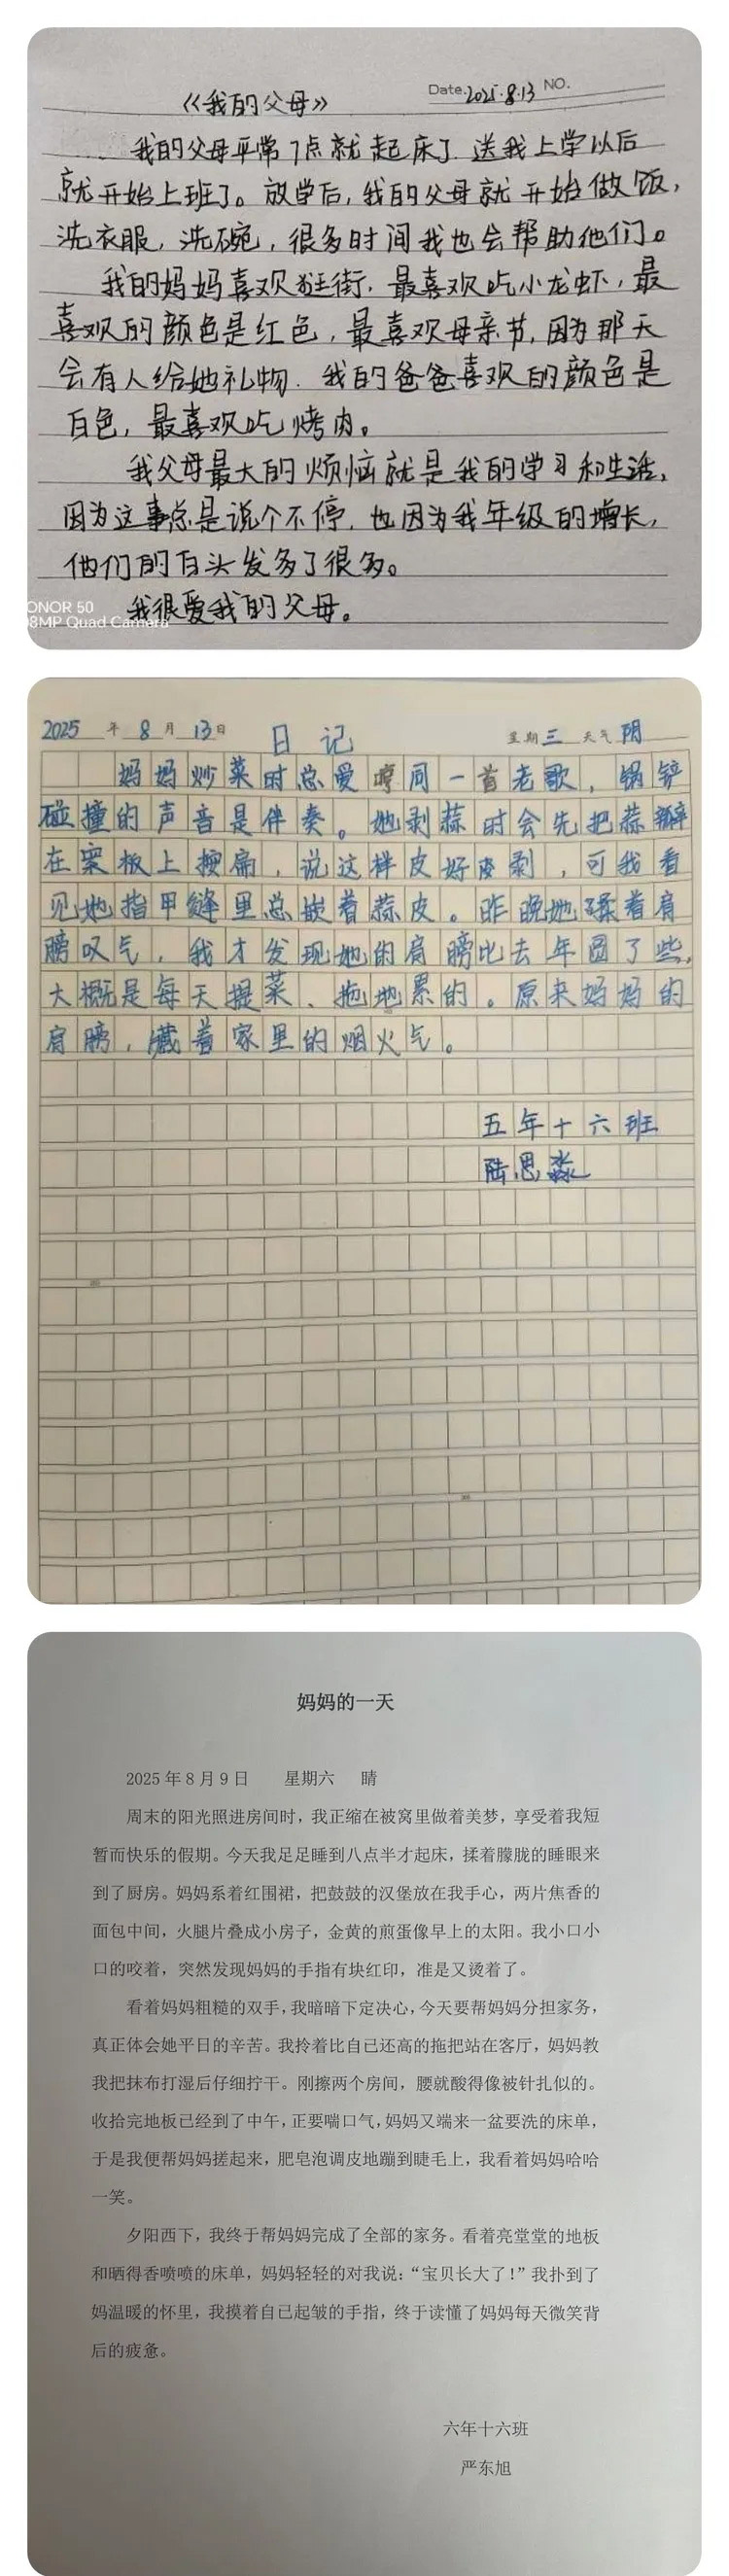 《我的父母》
Date. 2025.8.13 NO.
我的父母平常7点就起床了 送我上学以后
就开始上班了。放学后,我的父母就开始做饭,
洗衣服,洗碗,很多时间我也会帮助他们。
我的妈妈喜欢逛街,最喜欢吃小龙虾,最
喜欢的颜色是红色,最喜欢母亲节,因为那天
会有人给她礼物.我的爸爸喜欢的颜色是
白色,最喜欢吃烤肉。
我父母最大的烦恼就是我的学习和生活,
因为这事总是说个不停.也因为我年级的增长,
他们的白头发多了很多。
我很爱我的父母。
ONOR 50
8MP Quad Camera
2025年8月13日 日记 星期三 天气阴
妈妈炒菜时总爱哼同一首老歌,锅铲
碰撞的声音是伴奏。她剥蒜时会先把蒜瓣
在案板上按扁,说这样皮好剥,可我看
见她指甲缝里总嵌着蒜皮。昨晚她揉着肩
膀叹气,我才发现她的肩膀比去年圆了些,
大概是每天提菜、拖地累的。原来妈妈的
肩膀,藏着家里的烟火气。
五年十六班
陆思淼
妈妈的一天
2025年8月9日 星期六 晴
周末的阳光照进房间时,我正缩在被窝里做着美梦,享受着我短
暂而快乐的假期。今天我足足睡到八点半才起床,揉着朦胧的睡眼来
到了厨房。妈妈系着红围裙,把鼓鼓的汉堡放在我手心,两片焦香的
面包中间,火腿片叠成小房子,金黄的煎蛋像早上的太阳。我小口小
口的咬着,突然发现妈妈的手指有块红印,准是又烫着了。
看着妈妈粗糙的双手,我暗暗下定决心,今天要帮妈妈分担家务,
真正体会她平日的辛苦。我拎着比自己还高的拖把站在客厅,妈妈教
我把抹布打湿后仔细拧干。刚擦两个房间,腰就酸得像被针扎似的。
收拾完地板已经到了中午,正要喘口气,妈妈又端来一盆要洗的床单,
于是我便帮妈妈搓起来,肥皂泡调皮地蹦到睫毛上,我看着妈妈哈哈
一笑。
夕阳西下,我终于帮妈妈完成了全部的家务。看着亮堂堂的地板
和晒得香喷喷的床单,妈妈轻轻的对我说:“宝贝长大了!”我扑到了
妈温暖的怀里,我摸着自己起皱的手指,终于读懂了妈妈每天微笑背
后的疲惫。
六年十六班
严东旭